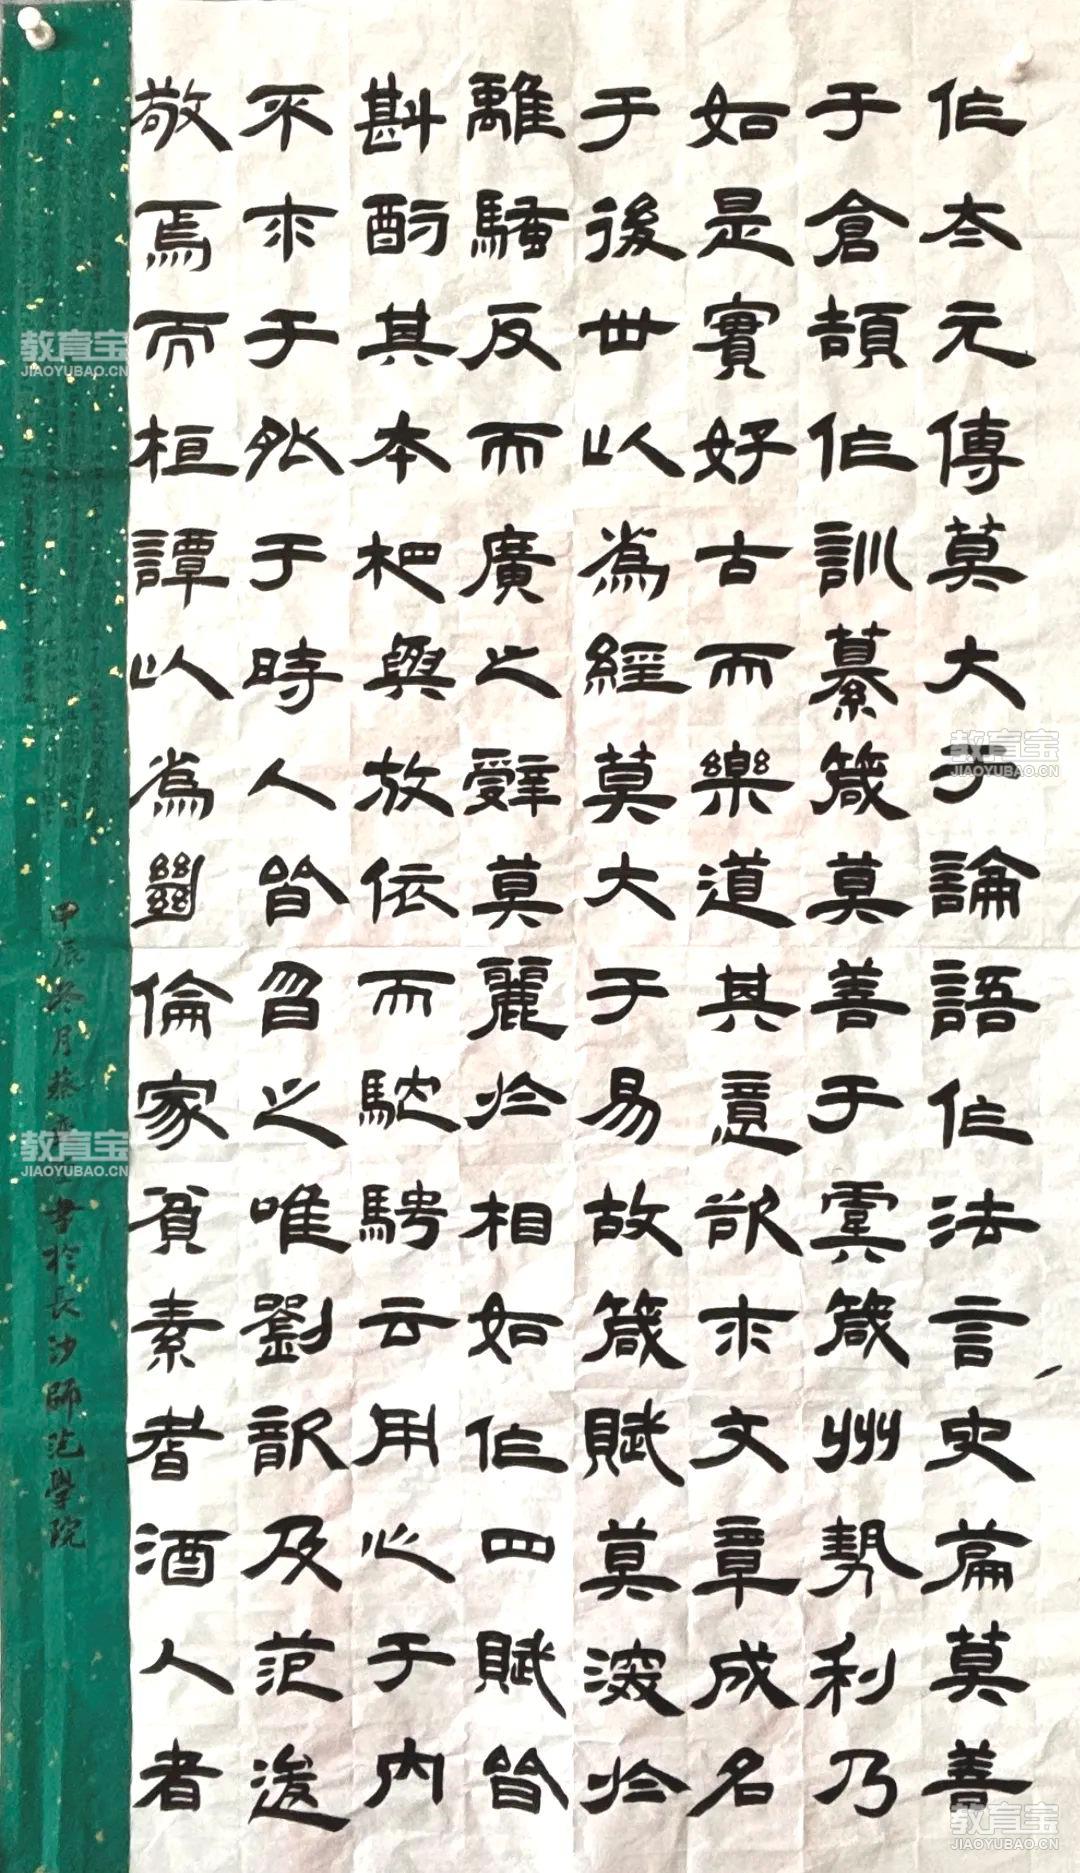 作太元傳莫大于論語作法言史篇莫善
于倉頡作訓纂箴莫善于虞箴州勢利乃
如是實好古而樂道其意欲求文章成名
于後世以為經莫大于易故箴賦莫深於
離騷反而廣之辭莫麗於相如作四賦皆
斟酌其本杷與放依而馳騁云用心于內
不求于外于時人皆曶之唯劉歆及范逡
敬焉而桓譚以為絕倫家貧素耆酒人者
甲辰冬月蔡書於長沙師范學院
教育宝
JIAOYUBAO.CN
教育宝
JIAOYUBAO.CN
教育宝
JIAOYUBAO.CN
教育宝
JIAOYUBAO.CN